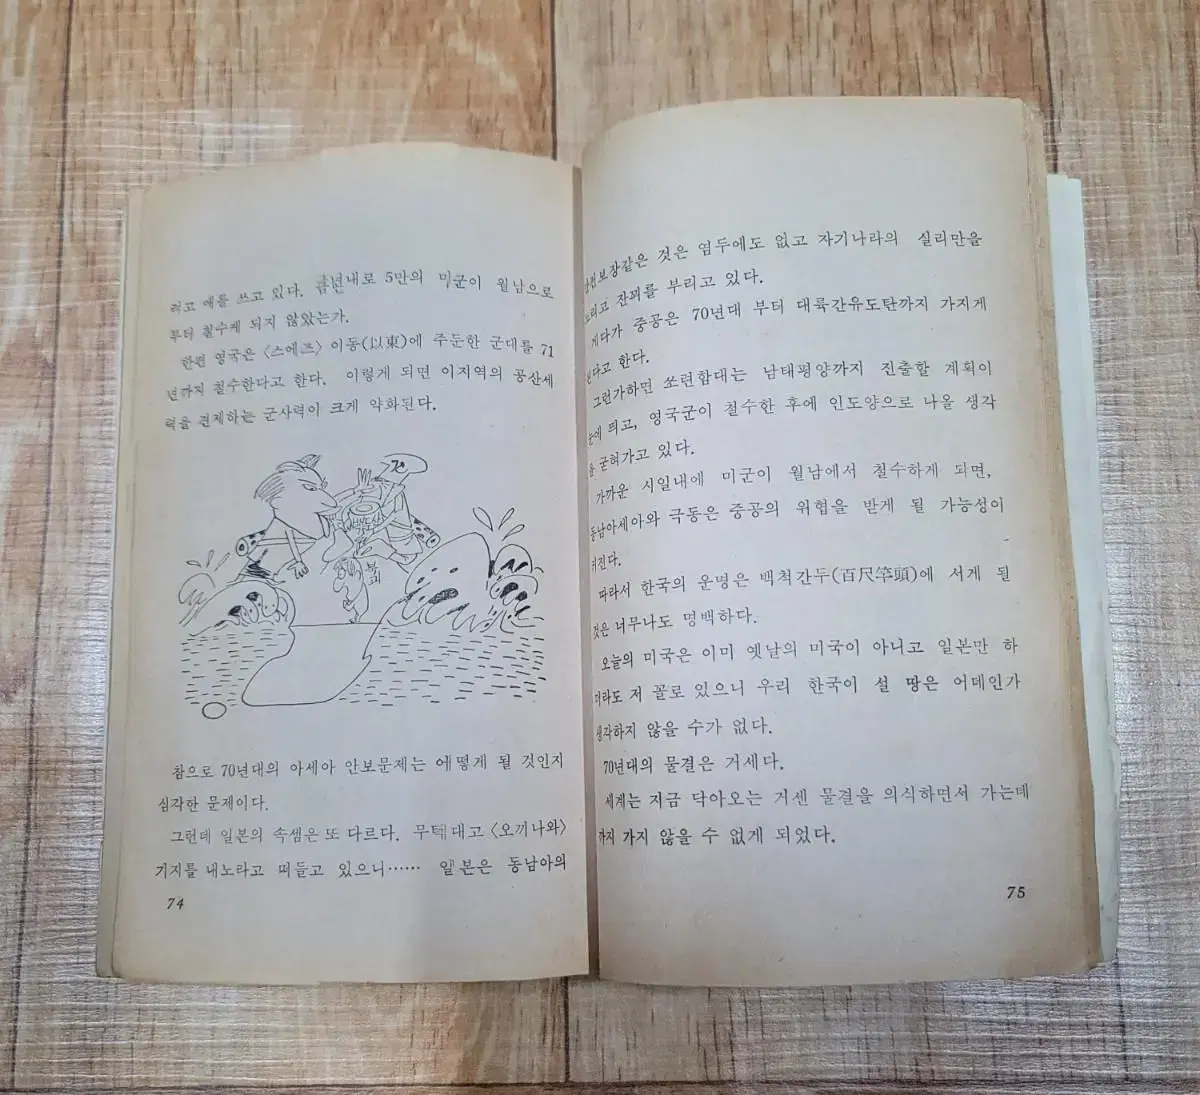 려고 애를 쓰고 있다. 금년내로 5만의 미군이 월남으로
부터 철수케 되지 않았는가.
한편 영국은 〈스에즈〉 이동(以東)에 주둔한 군대를 71
년까지 철수한다고 한다. 이렇게 되면 이지역의 공산세
력을 견제하는 군사력이 크게 약화된다.
북괴
참으로 70년대의 아세아 안보문제는 어떻게 될 것인지
심각한 문제이다.
그런데 일본의 속셈은 또 다르다. 무턱대고 〈오끼나와〉
기지를 내노라고 떠들고 있으니…… 일본은 동남아의
74
안전보장같은 것은 염두에도 없고 자기나라의 실리만을
노리고 잔꾀를 부리고 있다.
게다가 중공은 70년대 부터 대륙간유도탄까지 가지게
된다고 한다.
그런가하면 쏘련함대는 남태평양까지 진출할 계획이
눈에 띄고, 영국군이 철수한 후에 인도양으로 나올 생각
을 굳혀가고 있다.
가까운 시일내에 미군이 월남에서 철수하게 되면,
동남아세아와 극동은 중공의 위협을 받게 될 가능성이
커진다.
따라서 한국의 운명은 백척간두(百尺竿頭)에 서게 될
것은 너무나도 명백하다.
오늘의 미국은 이미 옛날의 미국이 아니고 일본만 하
더라도 저 꼴로 있으니 우리 한국이 설 땅은 어데인가
생각하지 않을 수가 없다.
70년대의 물결은 거세다.
세계는 지금 닥아오는 거센 물결을 의식하면서 가는데
까지 가지 않을 수 없게 되었다.
75